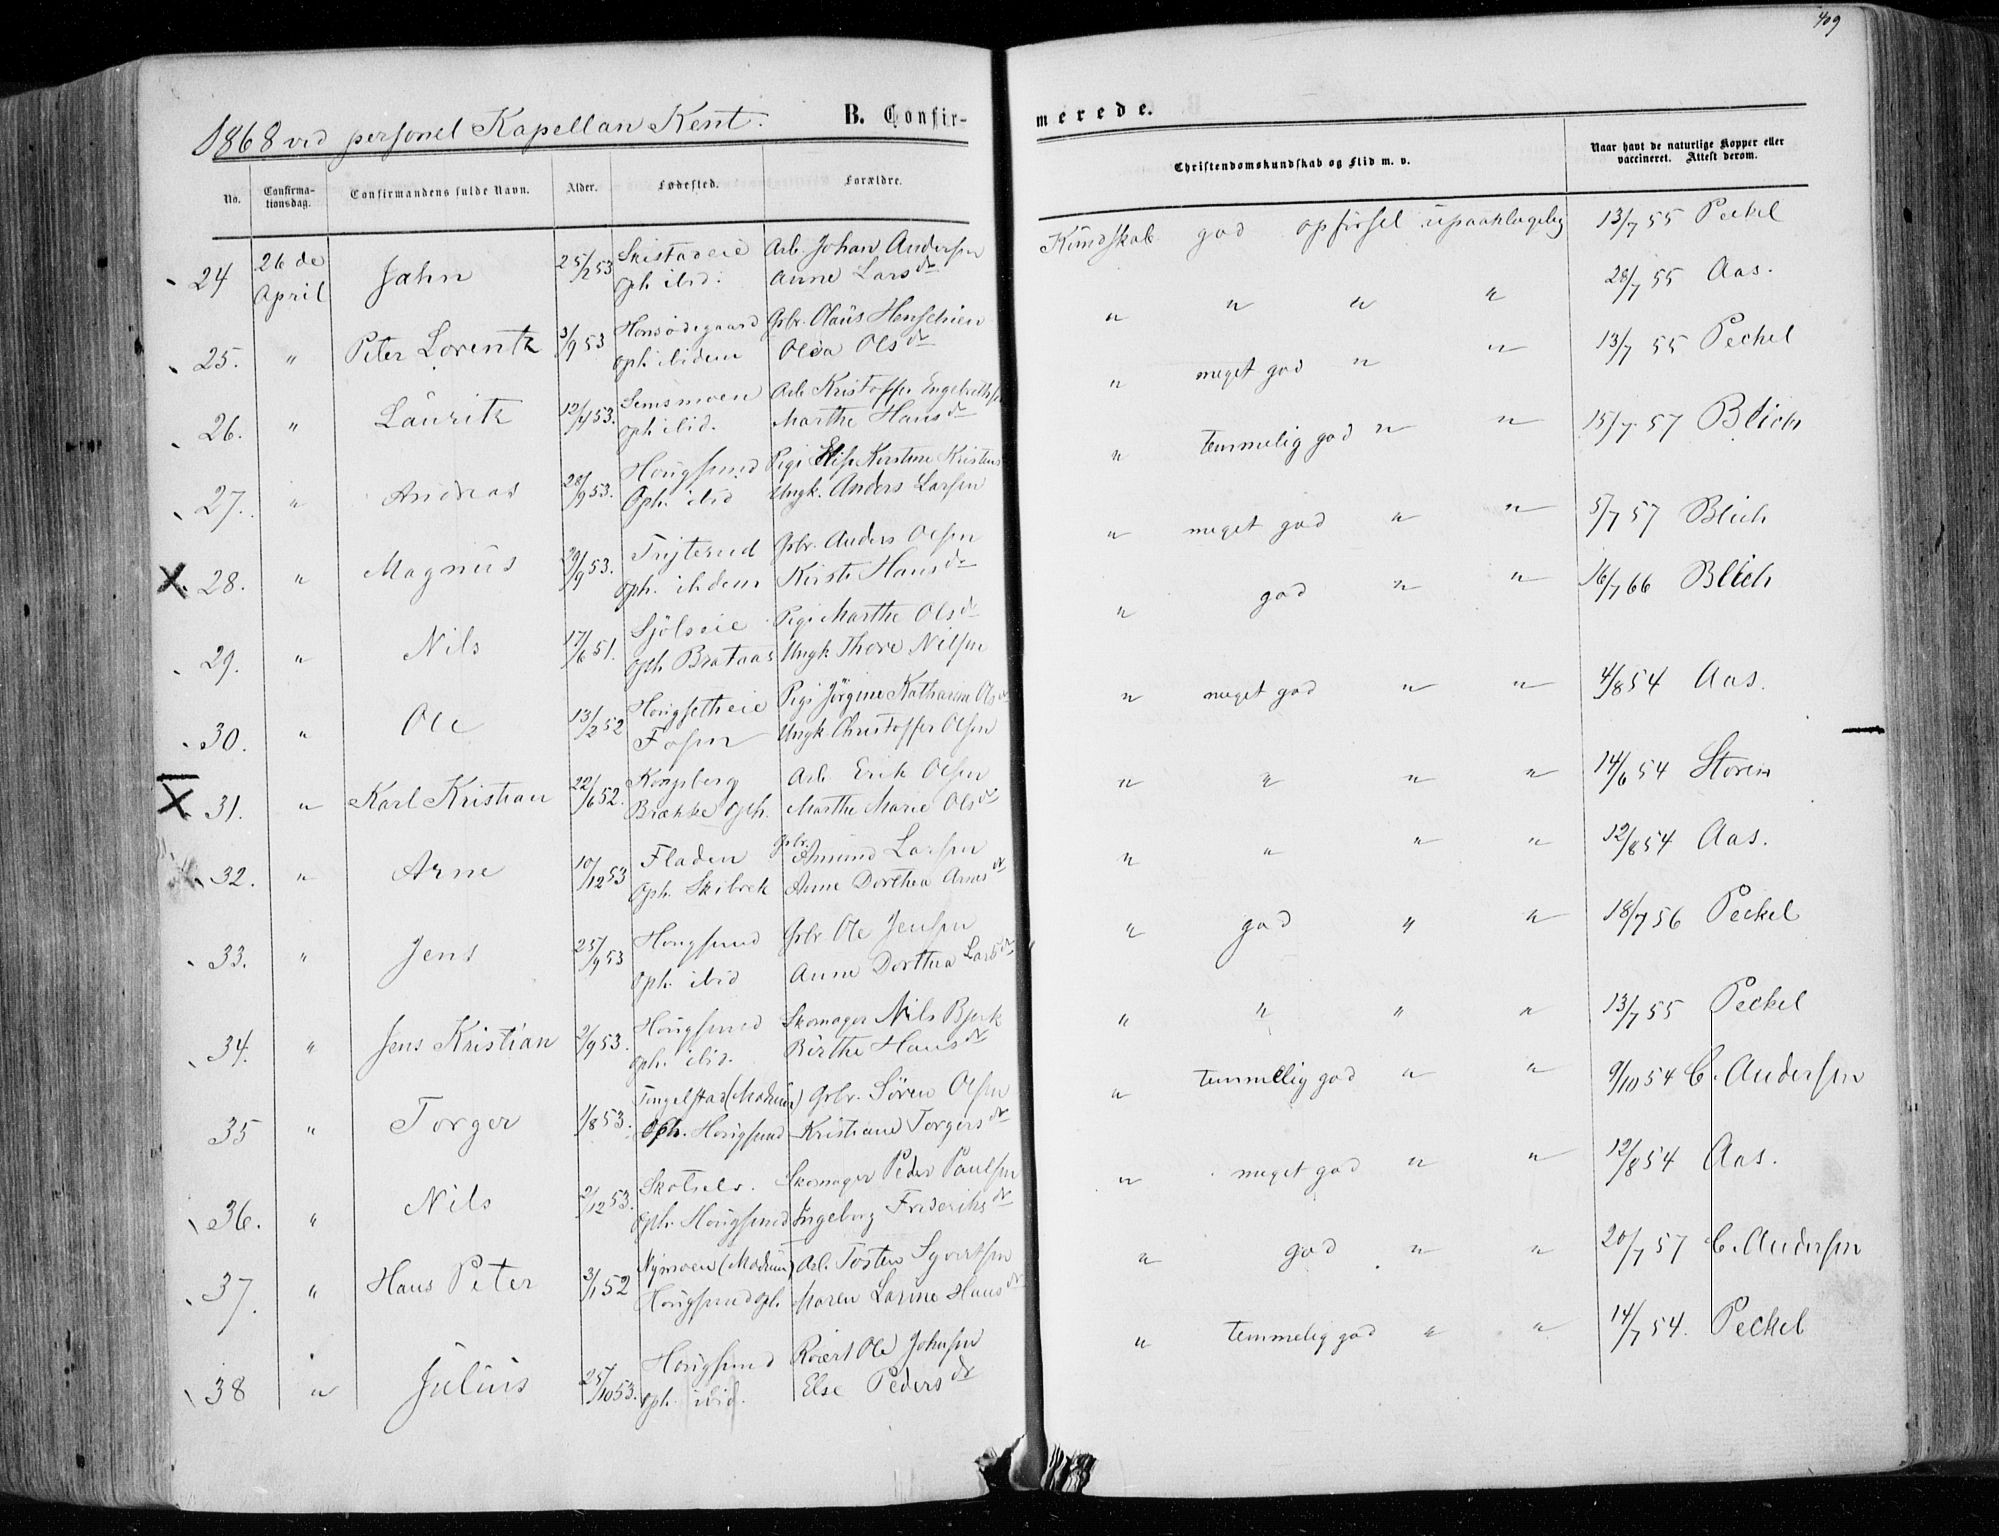 409
1868 ved personel Kapellan Kent. B. Confirmerede.
No. Confirmationsdag. Confirmandens fulde Navn. Alder. Fødested. Forældre. Christendomskundskab og Flid m. v. Naar havt de naturlige Kopper eller vaccineret. Attest derom.
24 26de April Jahn 25/2 53 Skistadeie Oph ibid: Arb. Johan Andersen Anne Larsdr Kundskab god opførsel upaaklagelig 13/7 55 Peckel
25. " Peter Lorentz 3/9 53 Honsødegaard oph ibidem Gbr. Olaus Henschien Olea Olsdr " " " " 28/7 55 Aas.
26. " Lauritz 12/4 53. Semsmoen oph ibid. Arb Kristoffer Engebrethsen Marthe Hansdr " meget god " " 13/7 55 Peckel
27. " Andreas 28/9 53. Hougsund Oph. ibid Pige Elise Kirstine Kristens Ungk. Anders Larsen " temmelig god " " 15/7 57 Blich
X 28. " Magnus 29/9 53. Tryterud oph. ibidem Gbr. Anders Olsen Kirsti Hansdr " meget god " " 5/7 57 Blich
29. " Nils 17/6 51. Sjölseie oph Brataas Pige Marthe Olsdr Ungk Thore Nilsen " god " " 16/7 66 Blich
30. " Ole 13/2 52 Hougsetheie Fosen Pige Jörgine Katharina Olsdr Ungk Christoffer Olsen " meget god " " 4/8 54 Aas.
X 31. " Karl Kristian 22/6 52. Kongsberg Brække oph. Arb Erik Olsen Marthe Marie Olsdr " " " " 14/6 54 Storen
32. " Arne 10/12 53 Fladen Oph. Skibrek Gbr. Amund Larsen Anne Dorthea Arnesdr " " " " 12/8 54 Aas.
33. " Jens 25/9 53 Hougsund Oph. ibid Gbr Ole Jensen Anne Dorthea Larsdr " god " " 18/7 56 Peckel
34. " Jens Kristian 2/9 53. Hougsund oph. ibid. Skomager Nils Bjerk Birthe Hansdr " " " " 13/7 55 Peckel
35 " Torger 1/8 53. Tingelstad (Modum) Oph. Hougsund Gbr. Sören Olsen Kristiane Torgersdr " temmelig god " " 9/10 54 C. Andersen
36. " Nils 2/12 53. Skotselv. Oph. Hougsund Skomager Peder Paulsen Ingeborg Frideriksdr " meget god " " 12/8 54 Aas.
37. " Hans Peter 3/1 52 Nymoen (Modum) Hougsund oph. Arb. Tosten Syvertsen Maren Larine Hansdr " god " " 20/7 57 C. Andersen
38 " Julius 25/10 53. Hougsund oph. ibid. Ole Johnsen Else Pedersdr " temmelig god " " 14/7 54. Peckel